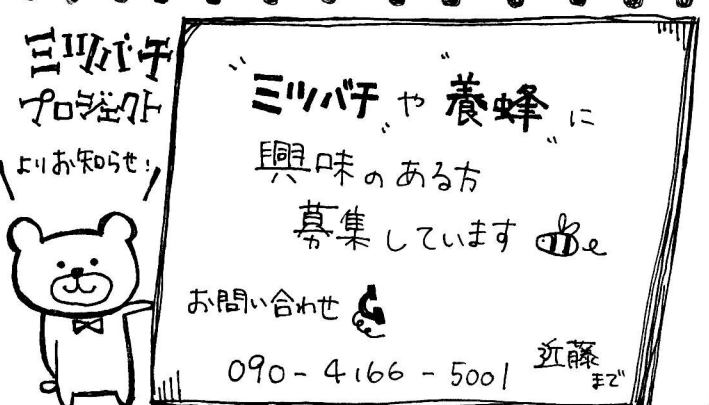 ミツバチ
プロジェクト
よりお知らせ!
"ミツバチ"や"養蜂"に
興味のある方
募集しています
お問い合わせ
090-4166-5001
近藤
まで